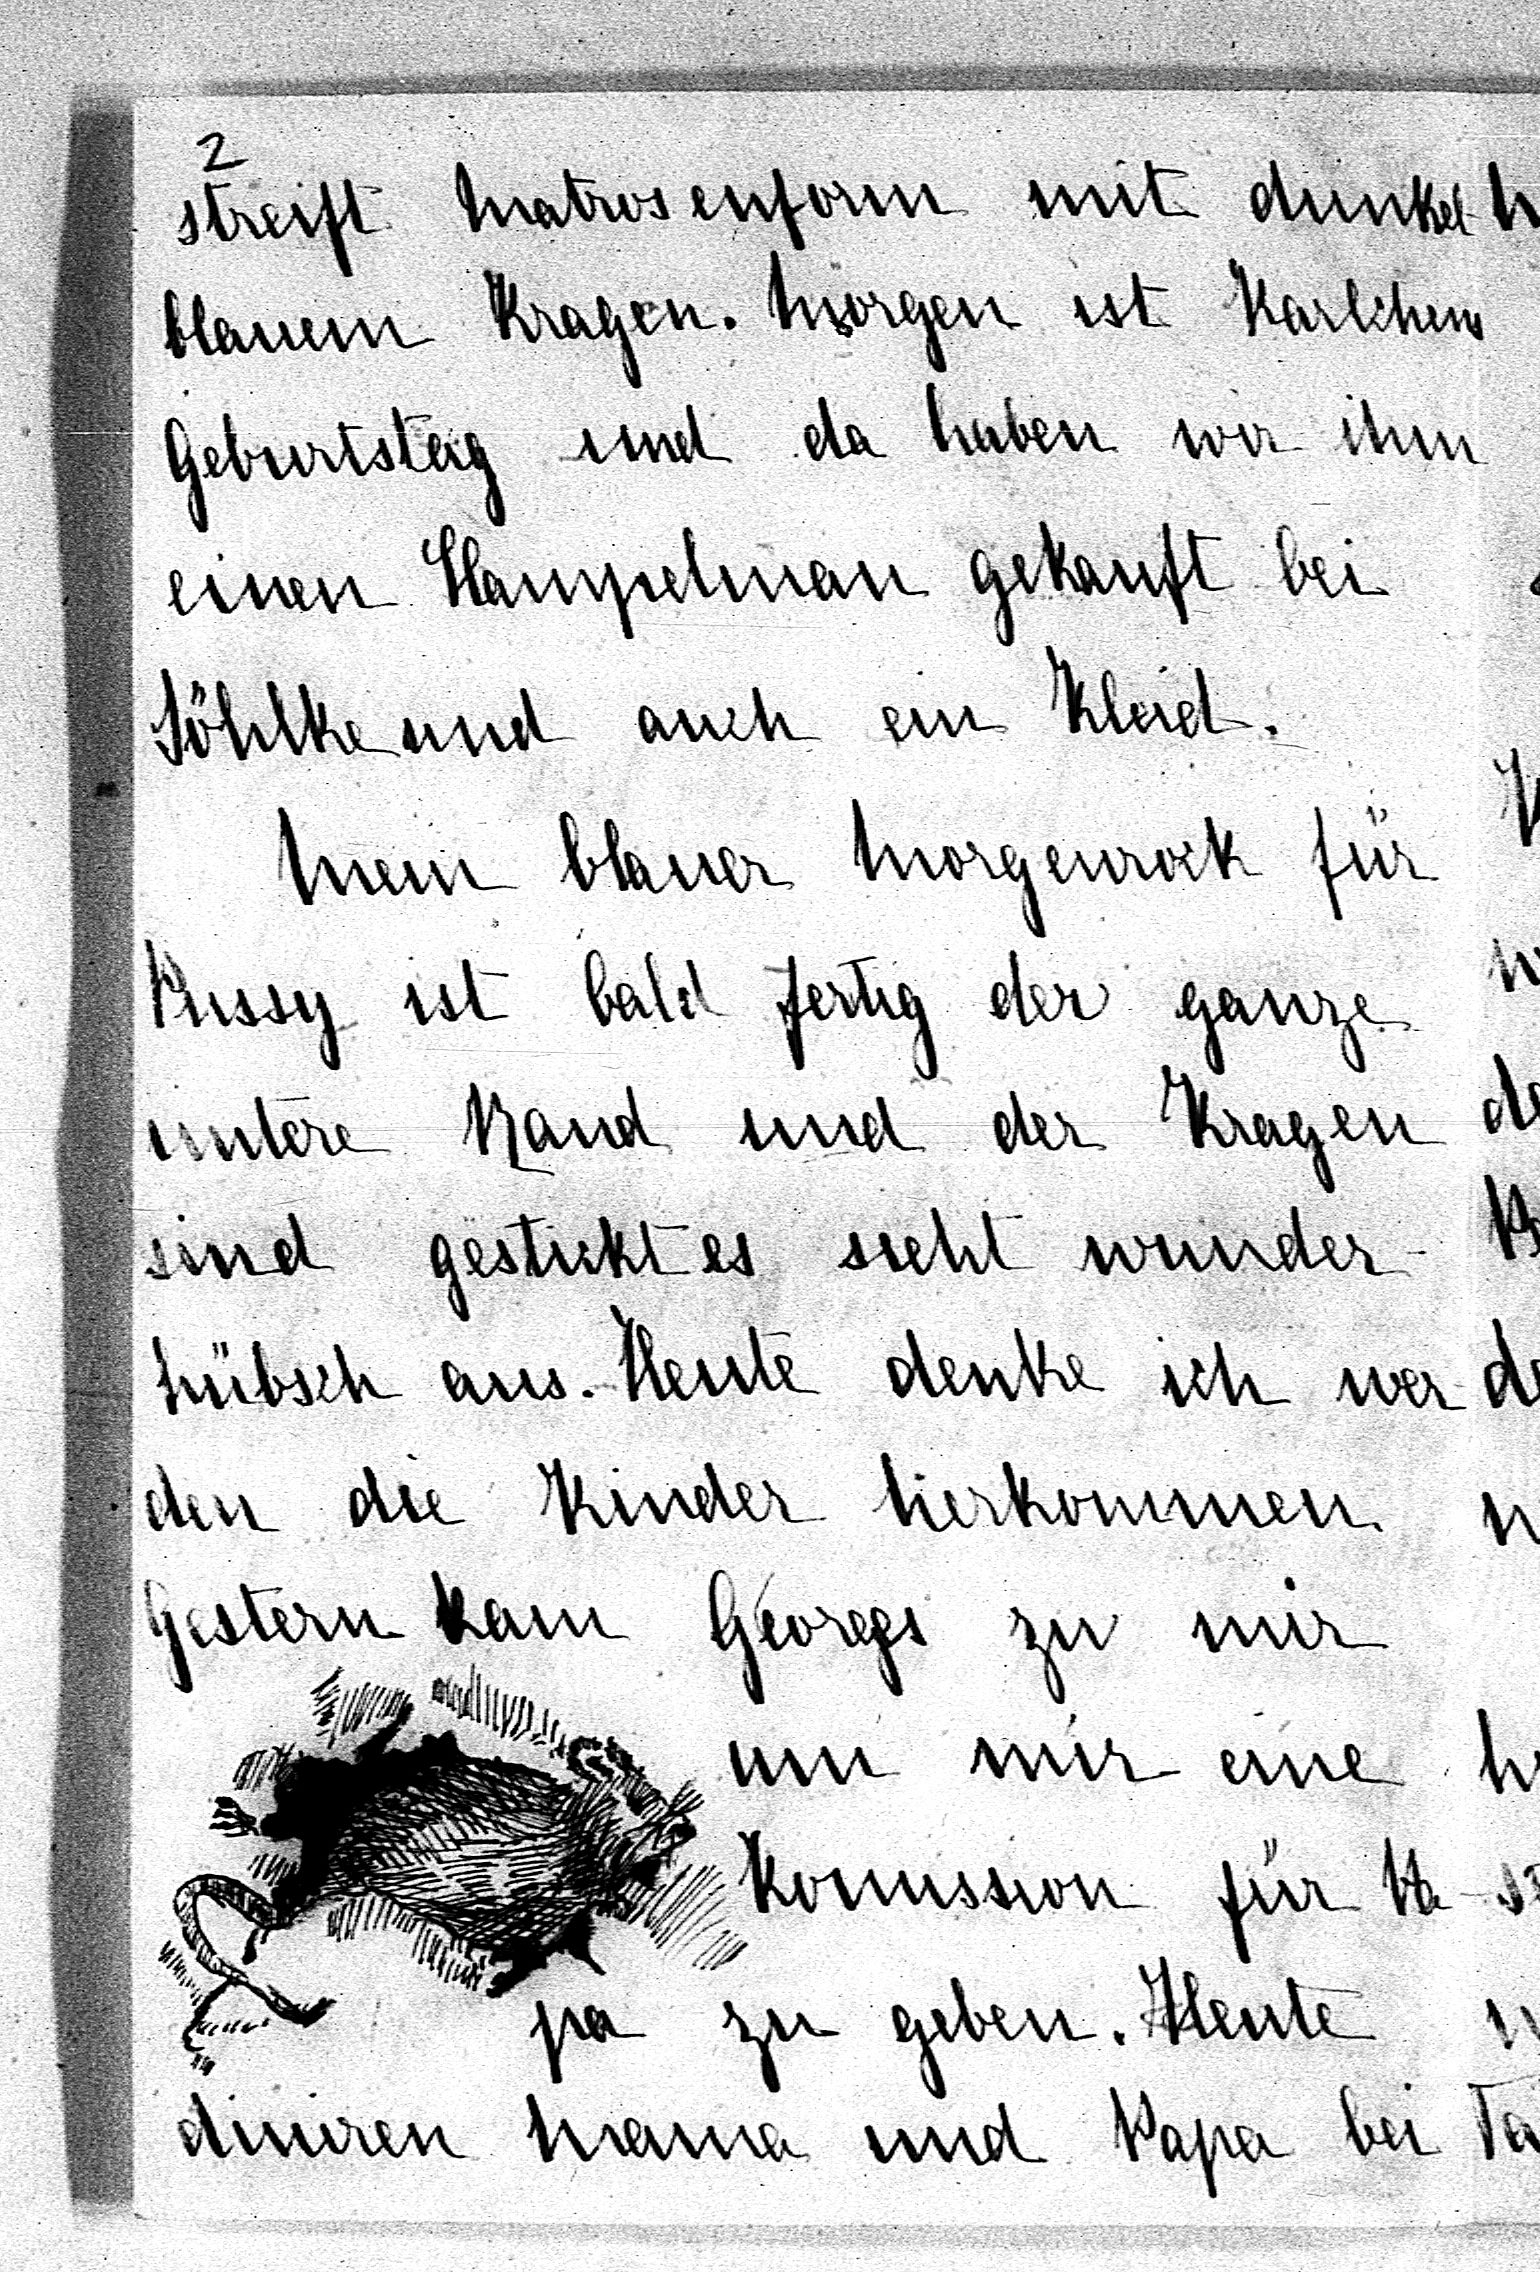 2
streift Matrosenform mit dunkel
blauem Kragen. Morgen ist Karlchens
Geburtstag und da haben wir ihm
einen Hampelman gekauft bei
Söhlke und auch ein Kleid.
Mein blauer Morgenrock für
Pussy ist bald fertig der ganze
untere Rand und der Kragen
sind gestickt es sieht wunder-
hübsch aus. Heute denke ich wer-
den die Kinder herkommen.
Gestern kam Georgs zu mir
um mir eine
Komission für Pa-
pa zu geben. Heute
diniren Mama und Papa bei